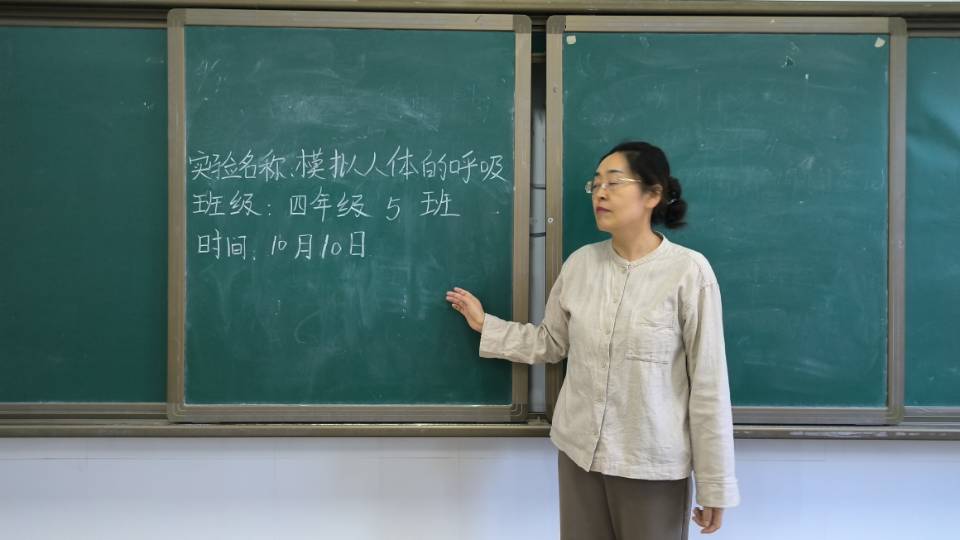 实验名称:模拟人体的呼吸
班级:四年级 5 班
时间:10月10日